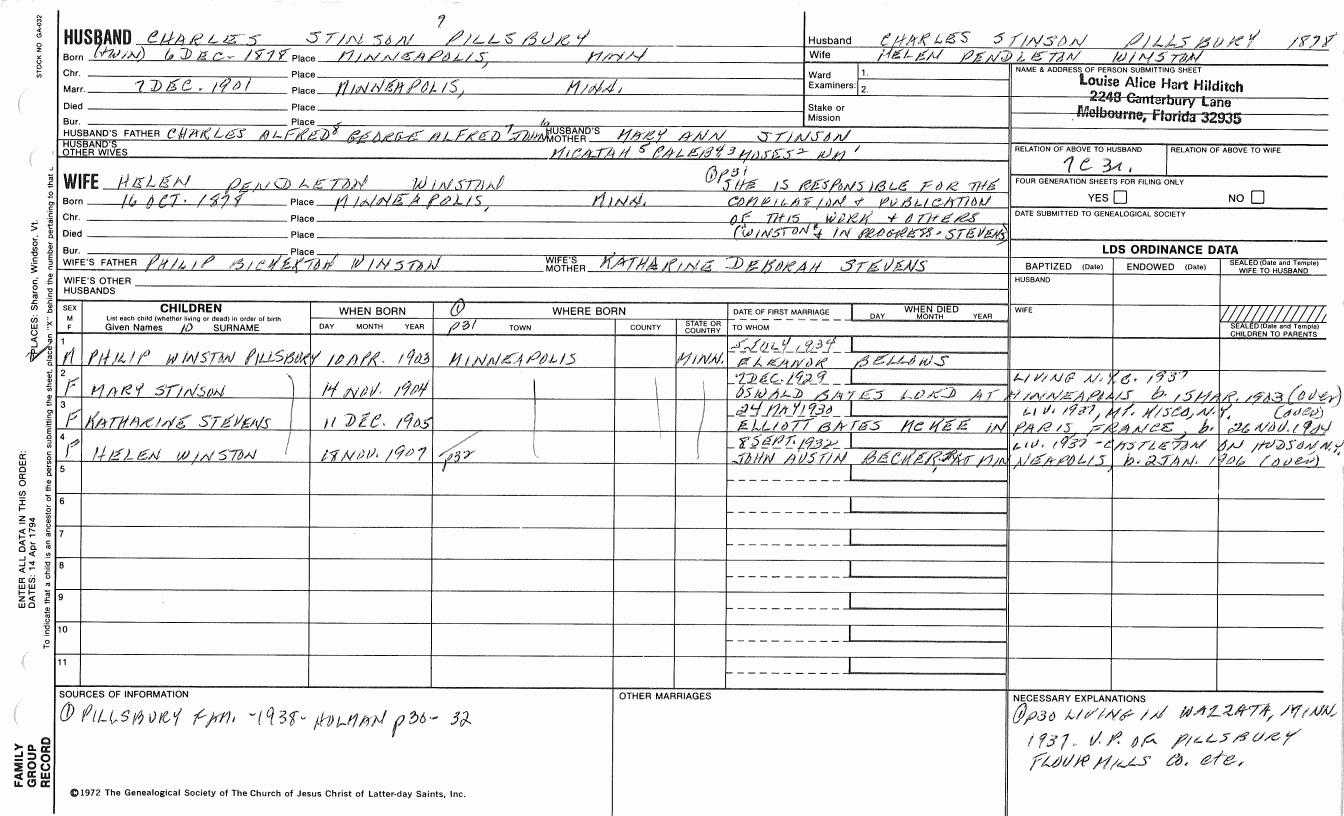 STOCK NO GA-032
9
HUSBAND CHARLES STINSON PILLSBURY
Born (TWIN) 6 DEC. 1878 Place MINNEAPOLIS, MINN
Chr. Place
Marr. 7 DEC. 1901 Place MINNEAPOLIS, MINN.
Died Place
Bur. Place
HUSBAND'S FATHER CHARLES ALFRED8 GEORGE ALFRED7 JOHN6 HUSBAND'S MOTHER MARY ANN STINSON
HUSBAND'S OTHER WIVES MICAJAH5 CALEB4 3 MOSES2 WM1
Husband CHARLES STINSON PILLSBURY 1878
Wife HELEN PENDLETON WINSTON
Ward Examiners: 1. 2.
Stake or Mission
NAME & ADDRESS OF PERSON SUBMITTING SHEET
Louise Alice Hart Hilditch
2248 Canterbury Lane
Melbourne, Florida 32935
RELATION OF ABOVE TO HUSBAND RELATION OF ABOVE TO WIFE
7C 3r.
FOUR GENERATION SHEETS FOR FILING ONLY
YES NO
DATE SUBMITTED TO GENEALOGICAL SOCIETY
WIFE HELEN PENDLETON WINSTON
Born 16 OCT. 1878 Place MINNEAPOLIS, MINN.
Chr. Place
Died Place
Bur. Place
WIFE'S FATHER PHILIP BICKERTON WINSTON WIFE'S MOTHER KATHARINE DEBORAH STEVENS
WIFE'S OTHER HUSBANDS
① p31
SHE IS RESPONSIBLE FOR THE
COMPILATION & PUBLICATION
OF THIS WORK & OTHERS
(WINSTON & IN PROGRESS - STEVENS)
LDS ORDINANCE DATA
BAPTIZED (Date) ENDOWED (Date) SEALED (Date and Temple) WIFE TO HUSBAND
HUSBAND
WIFE
SEALED (Date and Temple) CHILDREN TO PARENTS
SEX M F
CHILDREN
List each child (whether living or dead) in order of birth
Given Names 10 SURNAME
WHEN BORN
DAY MONTH YEAR
① p31
WHERE BORN
TOWN COUNTY STATE OR COUNTRY
DATE OF FIRST MARRIAGE
TO WHOM
WHEN DIED
DAY MONTH YEAR
1 M PHILIP WINSTON PILLSBURY 10 APR. 1903 MINNEAPOLIS MINN. 5 JULY 1934
ELEANOR BELLOWS
2 F MARY STINSON 14 NOV. 1904 7 DEC. 1929 LIVING N.Y.C. 1937
OSWALD BATES LORD AT MINNEAPOLIS b. 15 MAR. 1903 (over)
3 F KATHARINE STEVENS 11 DEC. 1905 24 MAY 1930 LIV. 1937, MT. KISCO, N.Y. (over)
ELLIOTT BATES MCKEE IN PARIS, FRANCE, b. 26 NOV. 1904
4 F HELEN WINSTON 18 NOV. 1907 p32 8 SEPT. 1932 LIV. 1937 - CASTLETON ON HUDSON N.Y.
JOHN AUSTIN BECKER, AT MINNEAPOLIS, b. 2 JAN. 1906 (over)
5
6
7
8
9
10
11
SOURCES OF INFORMATION
① PILLSBURY FAM. - 1938 - HOLMAN p30-32
OTHER MARRIAGES
NECESSARY EXPLANATIONS
① p30 LIVING IN WAZZATA, MINN
1937. V.P. OF PILLSBURY
FLOUR MILLS CO. etc.
©1972 The Genealogical Society of The Church of Jesus Christ of Latter-day Saints, Inc.
FAMILY GROUP RECORD
ENTER ALL DATA IN THIS ORDER:
DATES: 14 Apr 1794
PLACES: Sharon, Windsor, Vt.
To indicate that a child is an ancestor of the person submitting the sheet, place an "X" behind the number pertaining to that